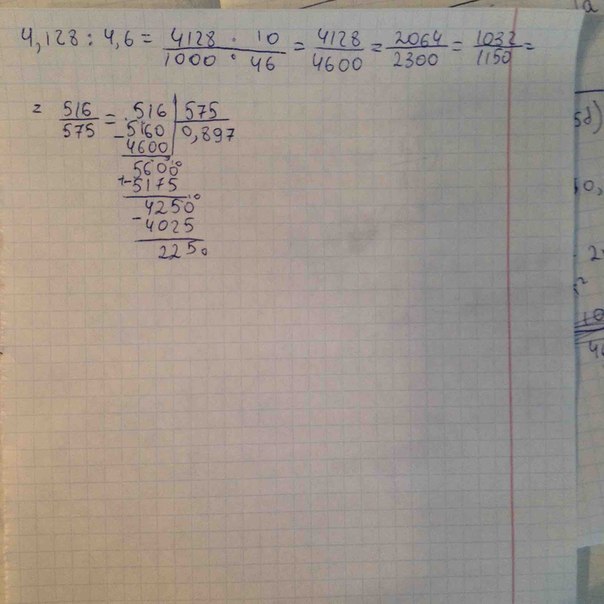 4,128 : 4,6 = 4128 · 10 / 1000 · 46 = 4128 / 4600 = 2064 / 2300 = 1032 / 1150 =
= 516 / 575 = 516 | 575
-5160 | 0,897
4600
5600
-5175
4250
-4025
2250